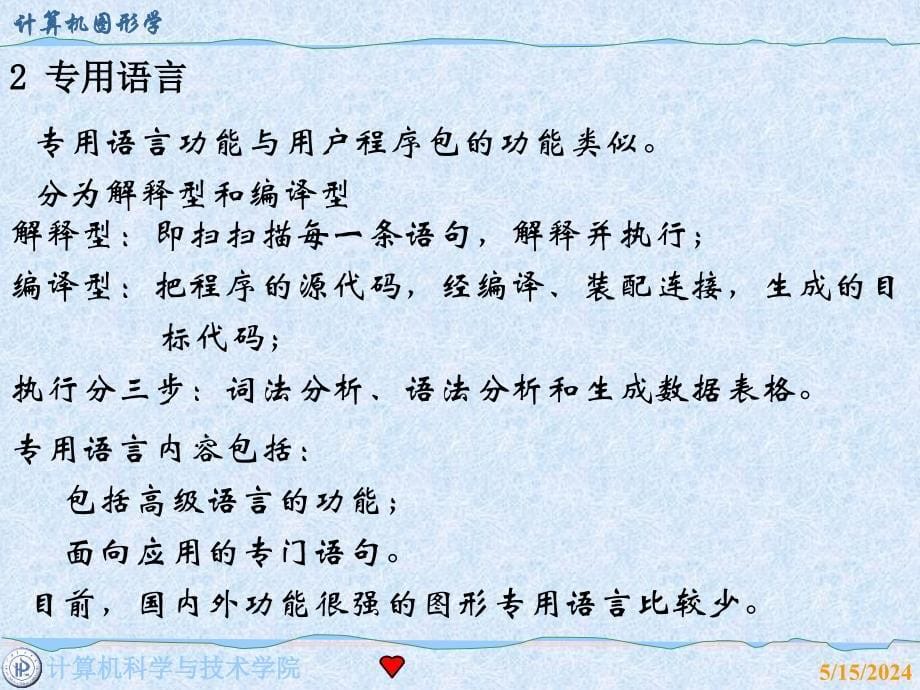 计算机图形学
2 专用语言
专用语言功能与用户程序包的功能类似。
分为解释型和编译型
解释型：即扫扫描每一条语句，解释并执行；
编译型：把程序的源代码，经编译、装配连接，生成的目
标代码；
执行分三步：词法分析、语法分析和生成数据表格。
专用语言内容包括：
包括高级语言的功能；
面向应用的专门语句。
目前，国内外功能很强的图形专用语言比较少。
计算机科学与技术学院
5/15/2024